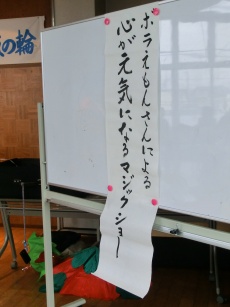 ホラえもんさんによる
心が元気になるマジックショー
の輪